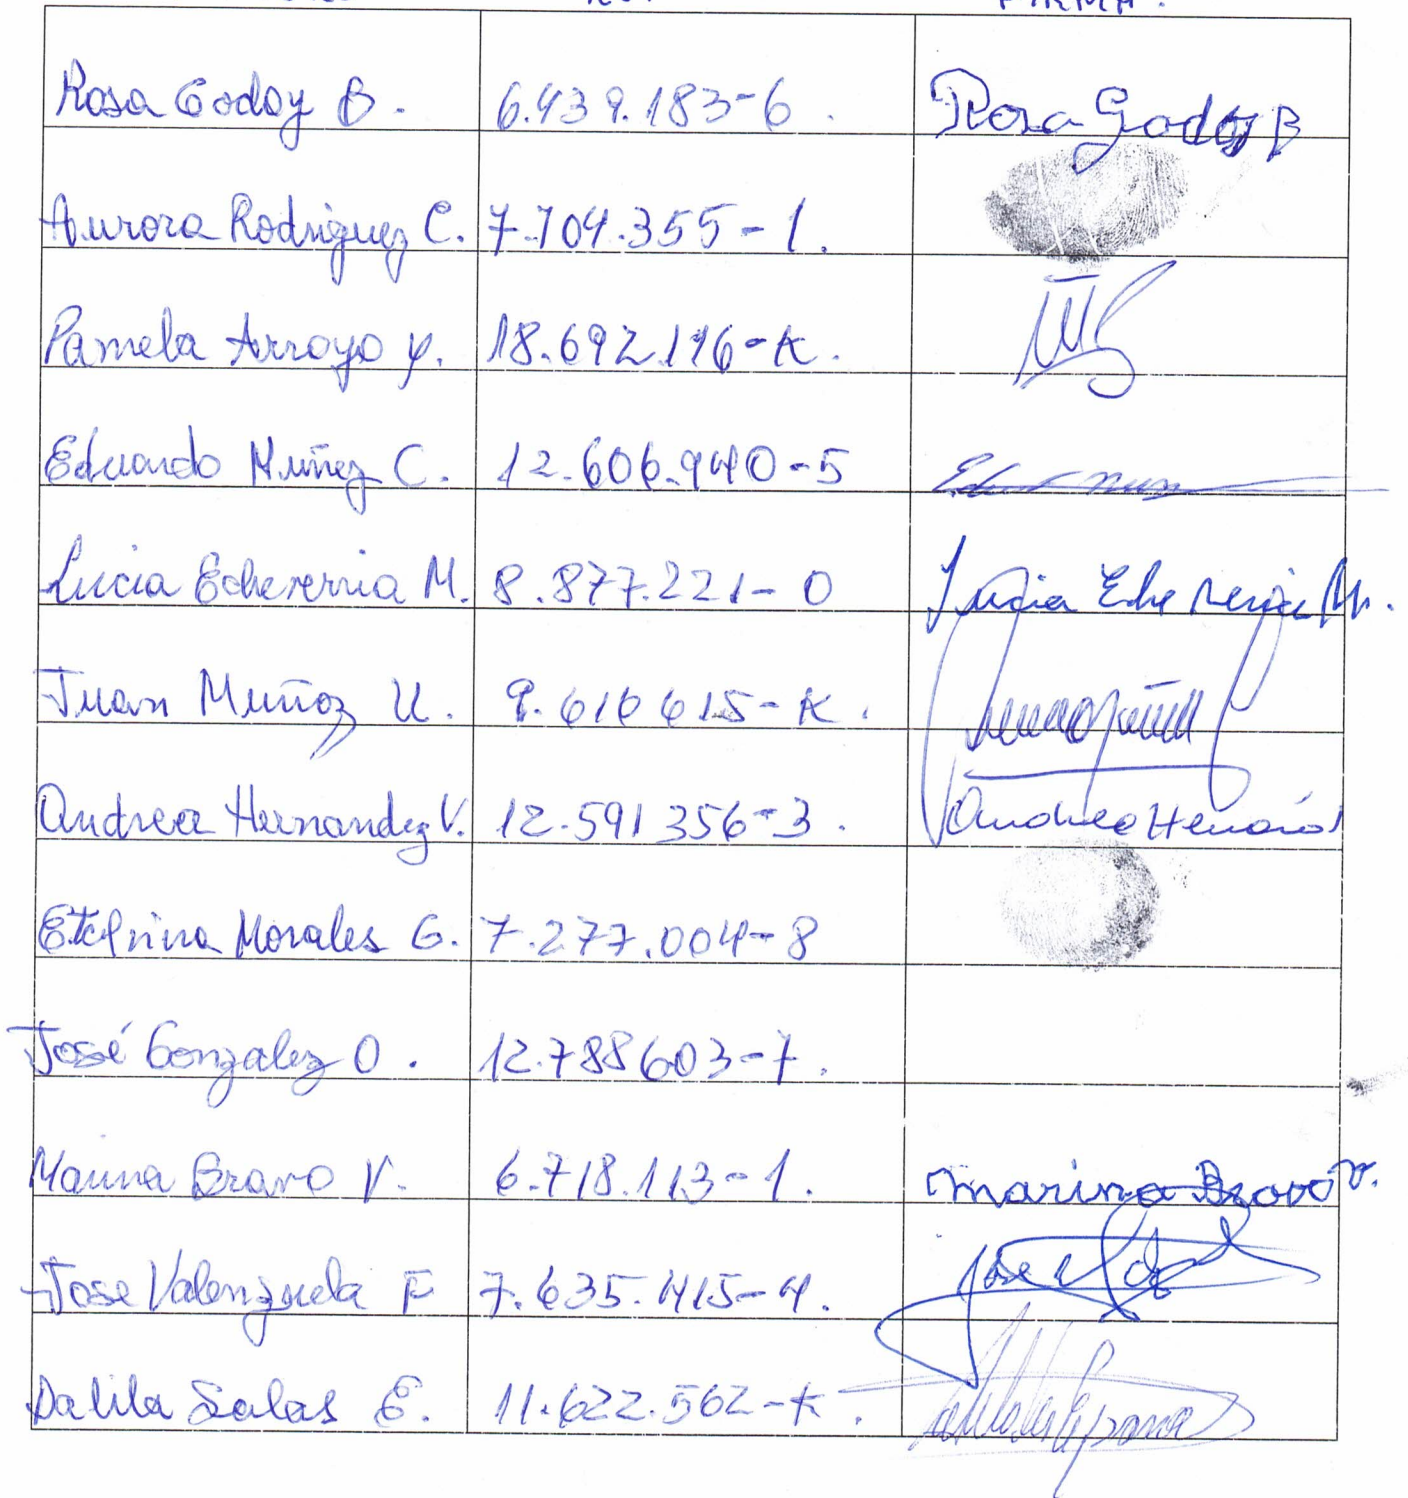 FIRMA.
Rosa Godoy B. 6.439.183-6. Rosa Godoy B
Aurora Rodriguez C. 7.704.355-1.
Pamela Arroyo y. 18.692.196-K.
Eduardo Muñoz C. 12.606.940-5
Lucia Echeverria M. 8.877.221-0 Lucia Echeverria M.
Juan Muñoz U. 9.616615-K.
Andrea Hernandez V. 12.591356-3. Andrea
Etelvina Morales G. 7.277.004-8
José Gonzalez O. 12.788603-7.
Marina Bravo V. 6.718.113-1. Marina Bravo V.
Jose Valenzuela F 7.635.415-4. Jose
Dalila Salas E. 11.622.562-K.